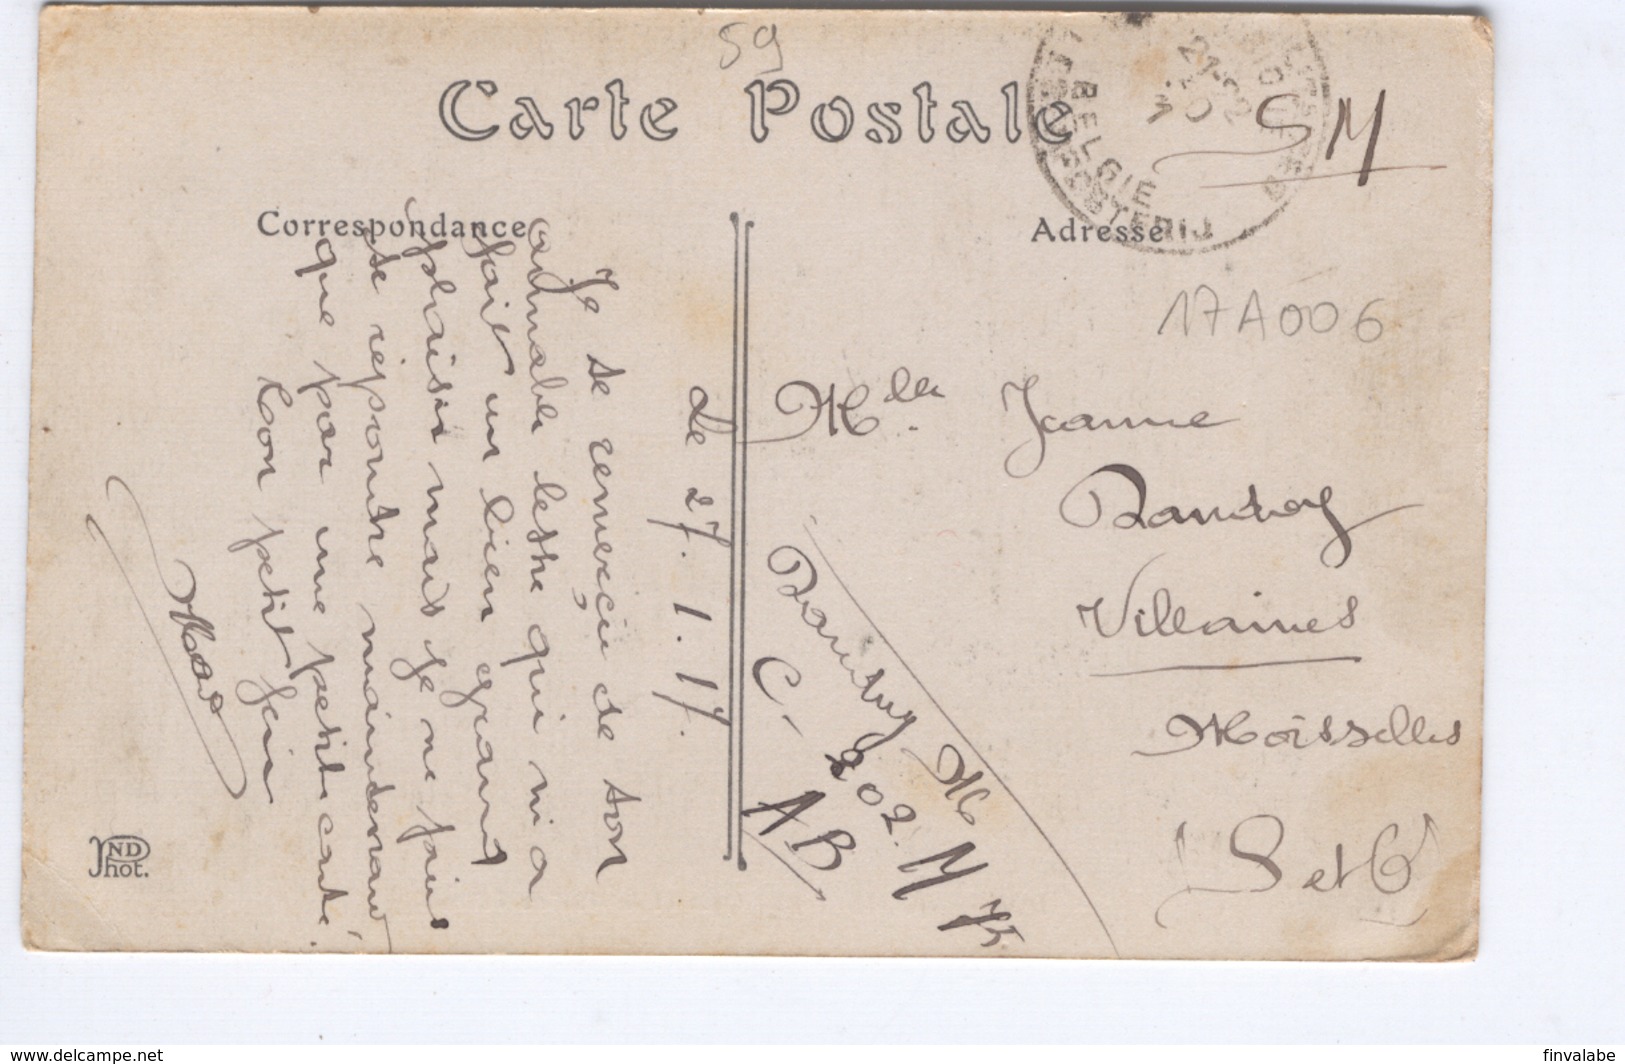 59
Carte Postale
BELGIE
SM
Correspondance
Adresse
17A006
Le 27. 1. 17.
Je te remercie de ton
admable lettre qui m'a
fait un bien grand
plaisir mais je ne puis
te répondre maintenant
que par une petite carte.
Ton petit
Mlle Jeanne
Villaines
Moisselles
S et O
C- 202. M 75
AB
ND
Phot.
delcampe.net
finvalabe